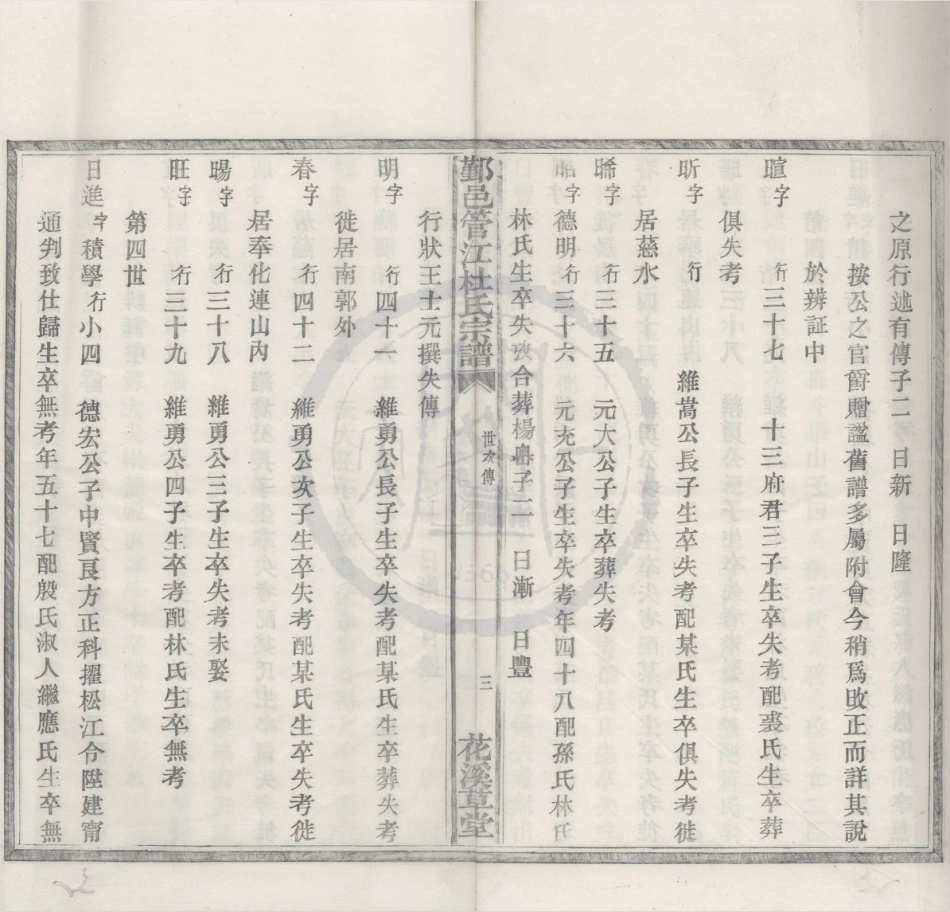 之原行述有傳子二日新　日隆
按公之官爵贈諡舊譜多屬附會今稍爲改正而詳其說
於辨証中
暄字　行三十七　十三府君三子生卒失考配裘氏生卒葬
俱失考
昕字　行　維嵩公長子生卒失考配某氏生卒俱失考徙
居慈水
晞字　行三十五　元大公子生卒葬失考
字德明行三十六　元充公子生卒失考年四十八配孫氏林氏
林氏生卒失攷合葬楊嶴子二　日漸　日豐
鄞邑管江杜氏宗譜
世次傳
三
花溪草堂
行狀王士元撰失傳
明字　行四十一　維勇公長子生卒失考配某氏生卒葬失考
徙居南郭外
春字　行四十二　維勇公次子生卒失考配某氏生卒失考徙
居奉化連山內
暘字　行三十八　維勇公三子生卒失考未娶
旺字　行三十九　維勇公四子生卒考配林氏生卒無考
第四世
日進字積學行小四　德宏公子中賢良方正科擢松江令陞建甯
通判致仕歸生卒無考年五十七配殷氏淑人繼應氏生卒無